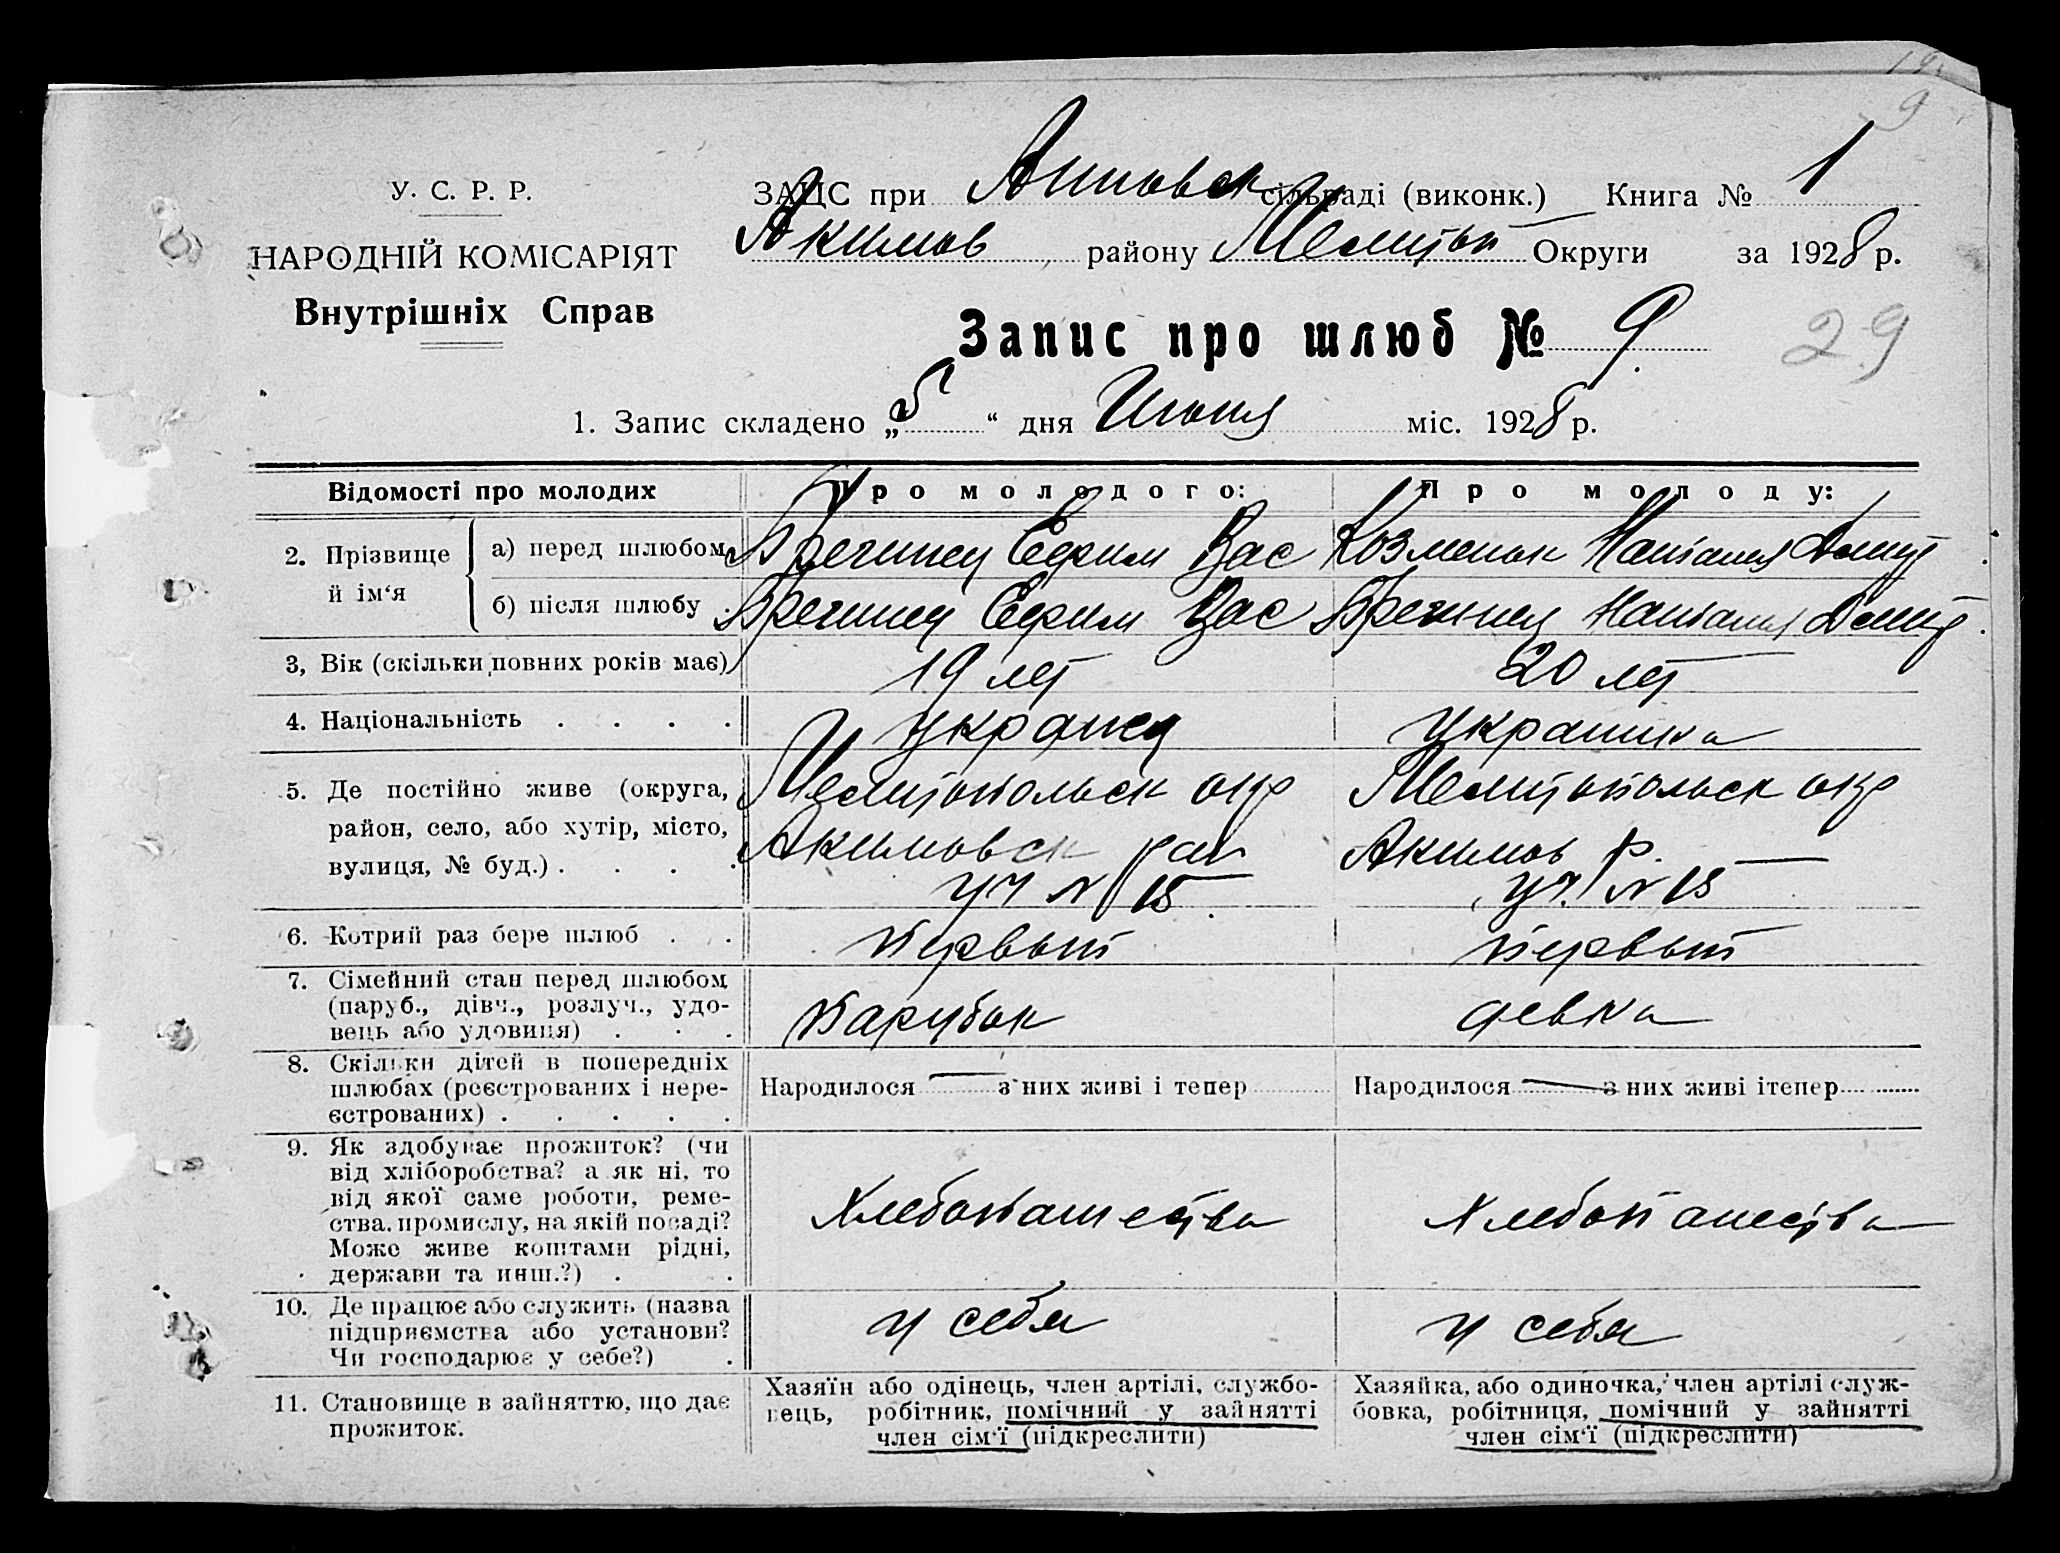 9
У. С. Р. Р.
НАРОДНІЙ КОМІСАРІЯТ
Внутрішніх Справ
ЗАЦС при Анновск сільраді (виконк.) Книга № 1
Акимов району Мелитоп Округи за 1928 р.
Запис про шлюб № 9.
29
1. Запис складено „5“ дня Июня міс. 1928 р.
Відомості про молодих Про молодого: Про молоду:
2. Прізвище й ім‘я
а) перед шлюбом Ефим Вас Козменок Наталия
б) після шлюбу Ефим Вас Наталия
3, Вік (скільки повних років має) 19 лет 20 лет
4. Національність . . . . Украинец Украинка
5. Де постійно живе (округа, Мелитопольск окр Мелитопольск окр
район, село, або хутір, місто, Акимовск рай Акимов р.
вулиця, № буд.) . . . . уч N 15 уч. N 15
6. Котрий раз бере шлюб . . Первый первый
7. Сімейний стан перед шлюбом
(паруб., дівч., розлуч., удо- Парубок девка
вець або удовиця) . . .
8. Скільки дітей в попередніх
шлюбах (реєстрованих і нере- Народилося — з них живі і тепер Народилося — з них живі ітепер
єстрованих) . . . . .
9. Як здобуває прожиток? (чи
від хліборобства? а як ні, то
від якої саме роботи, реме-
ства, промислу, на якій посаді? Хлебопашества Хлебопашества
Може живе коштами рідні,
держави та инш.?) . .
10. Де працює або служить (назва
підприємства або установи? у себя у себя
Чи господарює у себе?) .
11. Становище в зайняттю, що дає
прожиток.
Хазяїн або одінець, член артілі, службо-
вець, робітник, помічний у зайнятті
член сім‘ї (підкреслити)
Хазяйка, або одиночка, член артілі служ-
бовка, робітниця, помічний у зайнятті
член сім‘ї (підкреслити)